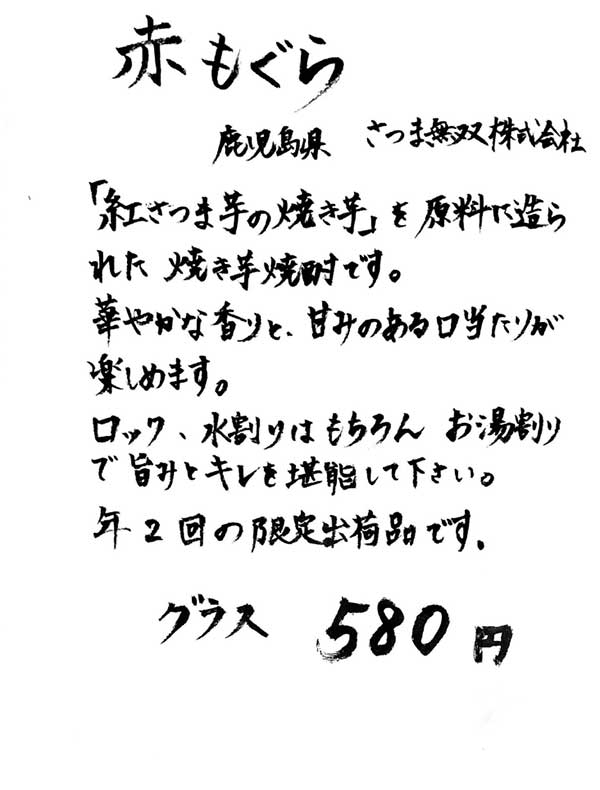 赤もぐら
鹿児島県 さつま無双株式会社
「紅さつま芋の焼き芋」を原料に造ら
れた 焼き芋焼酎です。
華やかな香りと、甘みのある口当たりが
楽しめます。
ロック、水割りはもちろん お湯割り
で旨みとキレを堪能して下さい。
年2回の限定出荷品です.
グラス 580円